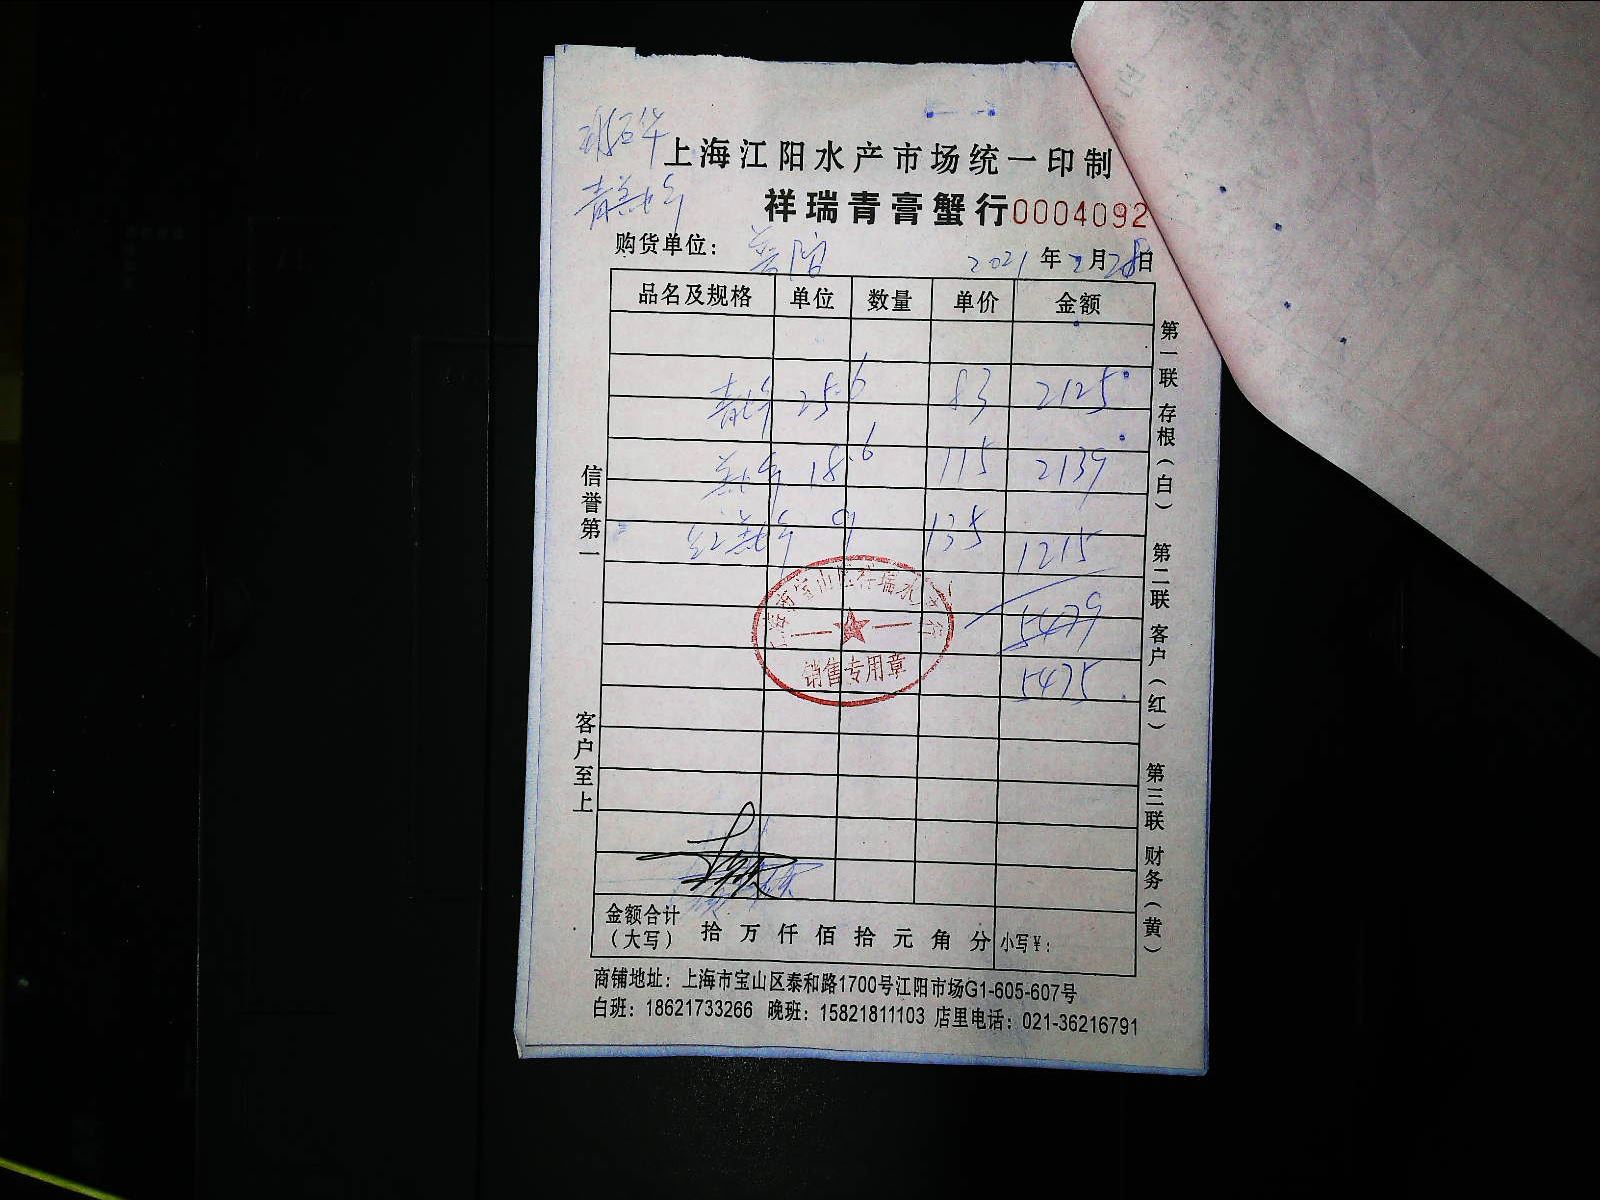 上海江阳水产市场统一印制
祥瑞青膏蟹行0004092
购货单位：
2021年2月28日
品名及规格 单位 数量 单价 金额
25.6 83 2125
18.6 115 2139
9 135 1215
5479
5475
信誉第一
客户至上
第一联 存根（白） 第二联 客户（红） 第三联 财务（黄）
销售专用章
金额合计（大写） 拾 万 仟 佰 拾 元 角 分 小写¥：
商铺地址：上海市宝山区泰和路1700号江阳市场G1-605-607号
白班：18621733266 晚班：15821811103 店里电话：021-36216791